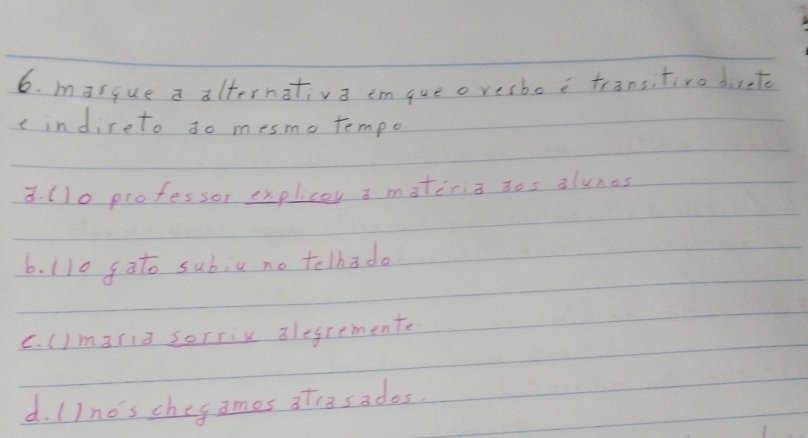 6. marque a alternativa em que o verbo é transitivo direto
e indireto ao mesmo tempo.
a. ( ) o professor explicou a matéria aos alunos
b. ( ) o gato subiu no telhado
c. ( ) maria sorriu alegremente.
d. ( ) nós chegamos atrasados.